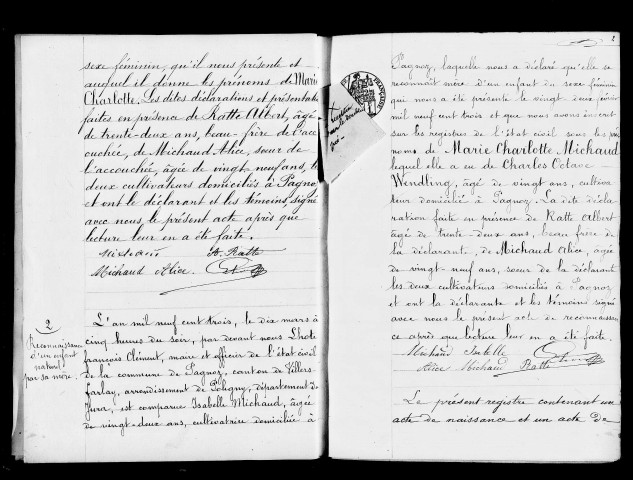 sexe féminin, qu'il nous présente et
auquel il donne les prénoms de Marie
Charlotte. Les dites déclarations et présentation
faites en présence de Ratte Albert, âgé
de trente-deux ans, beau-frère de l'acc
ouchée, de Michaud Alice, sœur de
l'accouchée, âgée de vingt neuf ans, les
deux cultivateurs domiciliés à Pagnoz
et ont le déclarant et les témoins, signé
avec nous le présent acte après que
lecture leur en a été faite.
A. Ratte
Michaud Alice.
2
Reconnaissance
d'un enfant
naturel
par sa mère.
L'an mil neuf cent trois, le dix mars à
cinq heures du soir, par devant nous Lhote
françois Clément, maire et officier de l'état civil
de la commune de Pagnoz, canton de Villers-
farlay, arrondissement de Poligny, département du
Jura, est comparue Isabelle Michaud, âgée
de vingt-deux ans, cultivatrice domiciliée à
2
Pagnoz, laquelle nous a déclaré qu'elle se
reconnait mère d'un enfant du sexe féminin
qui nous a été présenté le vingt-deux février
mil neuf cent trois et que nous avons inscrit
sur les registres de l'état civil sous les pré
noms de Marie Charlotte Michaud
lequel elle a eu de Charles Octave
Wendling, âgé de vingt ans, cultiva
teur domicilié à Pagnoz. La dite décla
ration faite en présence de Ratte Albert
âgé de trente-deux ans, beau frère de
la déclarante, de Michaud Alice, âgée
de vingt-neuf ans, sœur de la déclarante
les deux cultivateurs domiciliés à Pagnoz
et ont la déclarante et les témoins signé
avec nous le présent acte de reconnaissan
ce après que lecture leur en a été faite.
Michaud Isabelle
Alice Michaud Ratte
Le présent registre contenant un
acte de naissance et un acte de